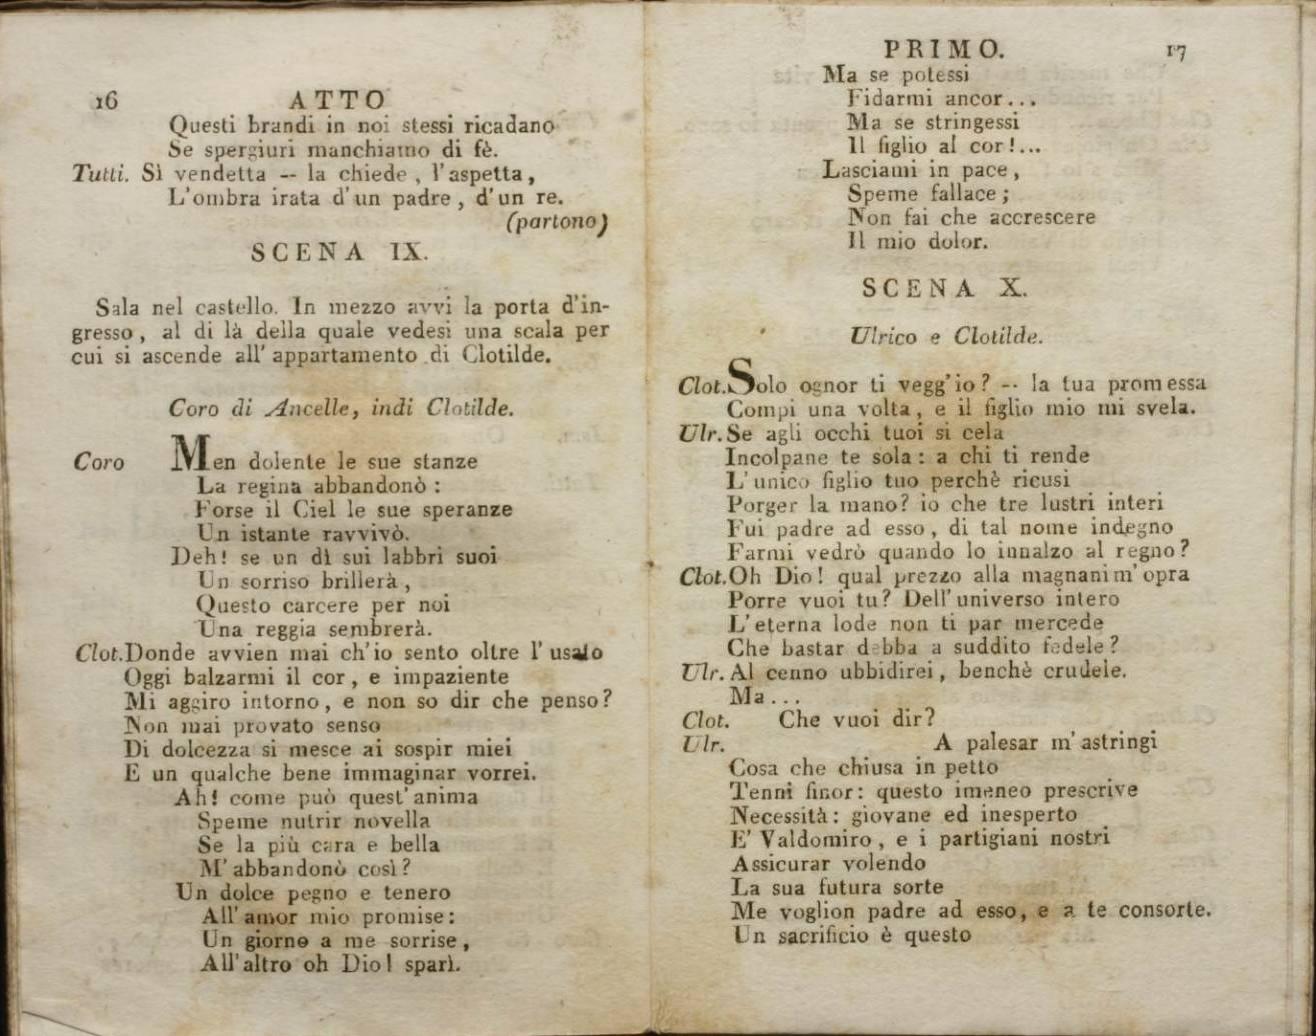 16 ATTO
Questi brandi in noi stessi ricadano
Se spergiuri manchiamo di fè.
Tutti. Sì vendetta -- la chiede, l'aspetta,
L'ombra irata d'un padre, d'un re.
(partono)
SCENA IX.
Sala nel castello. In mezzo avvi la porta d'in-
gresso, al di là della quale vedesi una scala per
cui si ascende all'appartamento di Clotilde.
Coro di Ancelle, indi Clotilde.
Coro Men dolente le sue stanze
La regina abbandonò:
Forse il Ciel le sue speranze
Un istante ravvivò.
Deh! se un dì sui labbri suoi
Un sorriso brillerà,
Questo carcere per noi
Una reggia sembrerà.
Clot. Donde avvien mai ch'io sento oltre l'usato
Oggi balzarmi il cor, e impaziente
Mi aggiro intorno, e non so dir che penso?
Non mai provato senso
Di dolcezza si mesce ai sospir miei
E un qualche bene immaginar vorrei.
Ah! come può quest'anima
Speme nutrir novella
Se la più cara e bella
M'abbandonò così?
Un dolce pegno e tenero
All'amor mio promise:
Un giorno a me sorrise,
All'altro oh Dio! sparì.
PRIMO. 17
Ma se potessi
Fidarmi ancor...
Ma se stringessi
Il figlio al cor!...
Lasciami in pace,
Speme fallace;
Non fai che accrescere
Il mio dolor.
SCENA X.
Ulrico e Clotilde.
Clot. Solo ognor ti vegg'io? -- la tua promessa
Compi una volta, e il figlio mio mi svela.
Ulr. Se agli occhi tuoi si cela
Incolpane te sola: a chi ti rende
L'unico figlio tuo perchè ricusi
Porger la mano? io che tre lustri interi
Fui padre ad esso, di tal nome indegno
Farmi vedrò quando lo innalzo al regno?
Clot. Oh Dio! qual prezzo alla magnanim'opra
Porre vuoi tu? Dell'universo intero
L'eterna lode non ti par mercede
Che bastar debba a suddito fedele?
Ulr. Al cenno ubbidirei, benchè crudele.
Ma...
Clot. Che vuoi dir?
Ulr. A palesar m'astringi
Cosa che chiusa in petto
Tenni finor: questo imeneo prescrive
Necessità: giovane ed inesperto
E' Valdomiro, e i partigiani nostri
Assicurar volendo
La sua futura sorte
Me voglion padre ad esso, e a te consorte.
Un sacrificio è questo